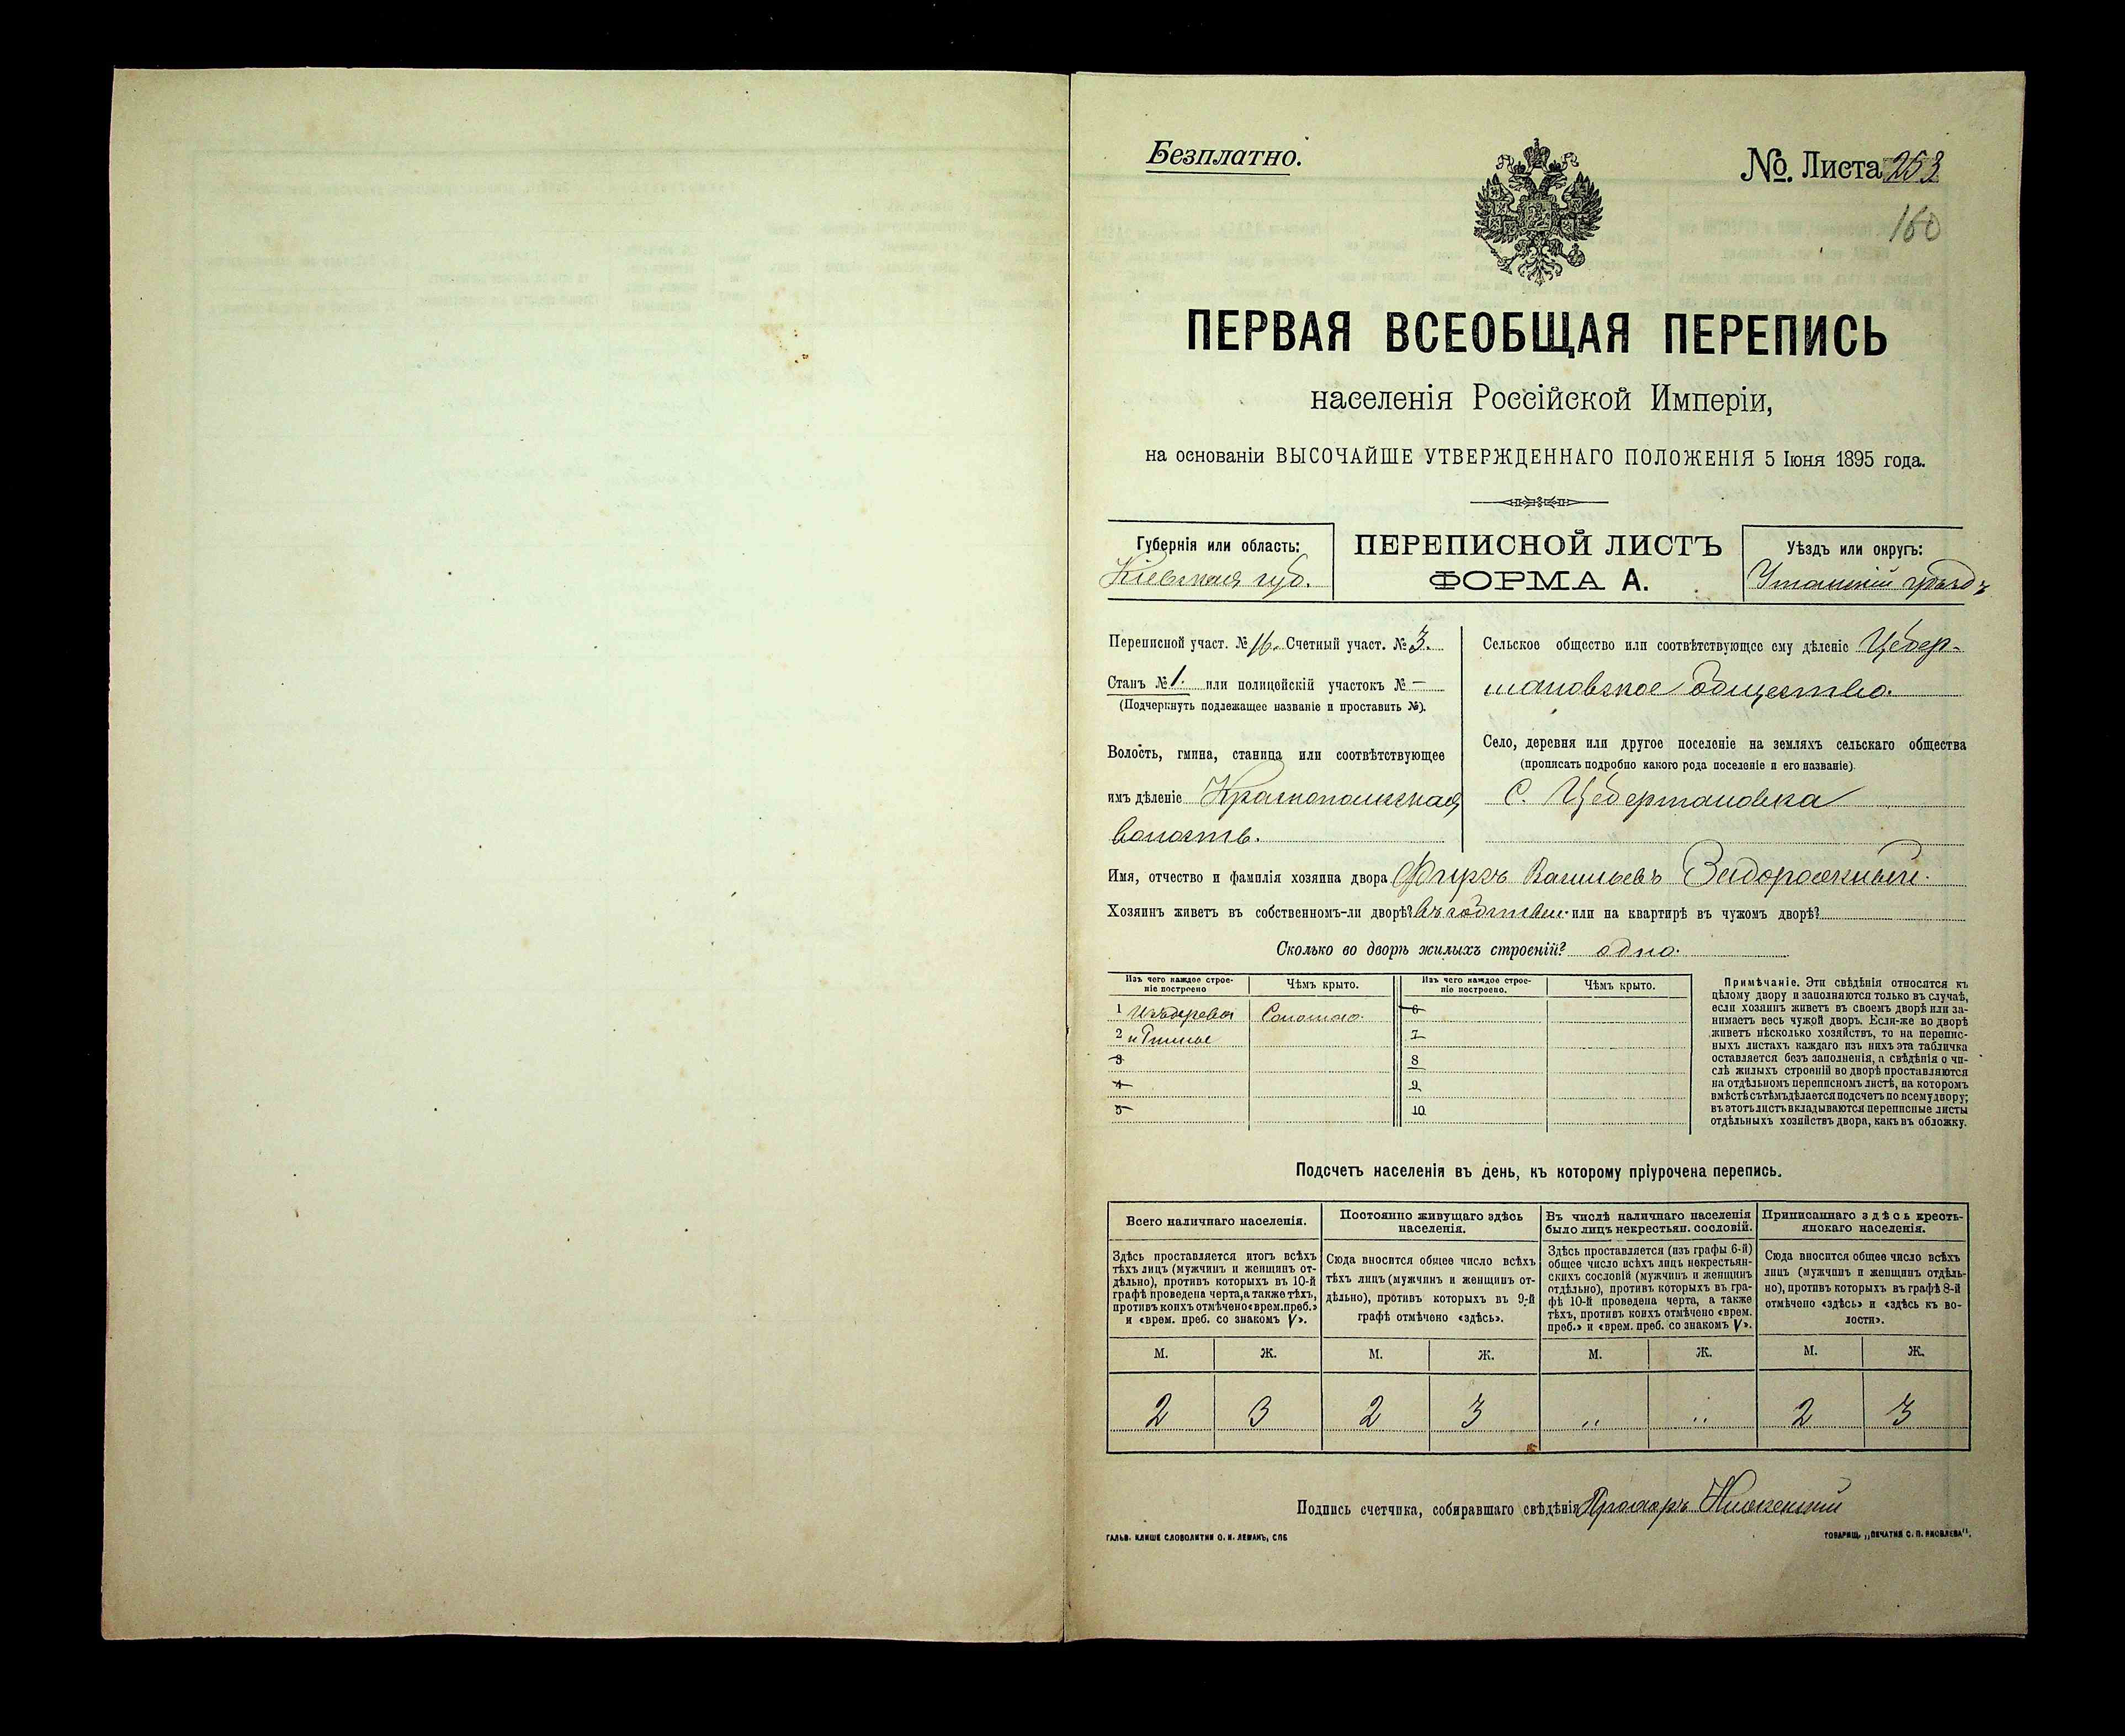 Безплатно.
№. Листа 253
160
ПЕРВАЯ ВСЕОБЩАЯ ПЕРЕПИСЬ
населенія Россійской Имперіи,
на основаніи ВЫСОЧАЙШЕ УТВЕРЖДЕННАГО ПОЛОЖЕНІЯ 5 Іюня 1895 года.
Губернія или область:
Кіевская губ.
ПЕРЕПИСНОЙ ЛИСТЪ
ФОРМА А.
Уѣздъ или округъ:
Уманскій уѣздъ
Переписной участ. № 16. Счетный участ. № 3.
Станъ № 1. или полицейскій участокъ № —
(Подчеркнуть подлежащее названіе и проставить №).
Волость, гмина, станица или соотвѣтствующее
имъ дѣленіе Краснопольская
волость.
Сельское общество или соотвѣтствующее ему дѣленіе Цебер-
мановское общество.
Село, деревня или другое поселеніе на земляхъ сельскаго общества
(прописать подробно какого рода поселеніе и его названіе).
С. Цебермановка
Имя, отчество и фамилія хозяина двора Фирсъ Васильевъ Задорожный.
Хозяинъ живетъ въ собственномъ-ли дворѣ? въ собствен. или на квартирѣ въ чужомъ дворѣ?
Сколько во дворѣ жилыхъ строеній? одно.
Изъ чего каждое строе-
ніе построено
Чѣмъ крыто.
Изъ чего каждое строе-
ніе построено.
Чѣмъ крыто.
1 Изъ дерева Соломою. 6
2 и Глины 7
3 8
4 9
5 10
Примѣчаніе. Эти свѣдѣнія относятся къ
цѣлому двору и заполняются только въ случаѣ,
если хозяинъ живетъ въ своемъ дворѣ или за-
нимаетъ весь чужой дворъ. Если-же во дворѣ
живетъ нѣсколько хозяйствъ, то на перепис-
ныхъ листахъ каждаго изъ нихъ эта табличка
оставляется безъ заполненія, а свѣдѣнія о чи-
слѣ жилыхъ строеній во дворѣ проставляются
на отдѣльномъ переписномъ листѣ, на которомъ
вмѣстѣ съ тѣмъ дѣлается подсчетъ по всему двору;
въ этотъ листъ вкладываются переписные листы
отдѣльныхъ хозяйствъ двора, какъ въ обложку.
Подсчетъ населенія въ день, къ которому пріурочена перепись.
Всего наличнаго населенія.
Здѣсь проставляется итогъ всѣхъ
тѣхъ лицъ (мужчинъ и женщинъ от-
дѣльно), противъ которыхъ въ 10-й
графѣ проведена черта, а также тѣхъ,
противъ коихъ отмѣчено «врем. преб.»
и «врем. преб. со знакомъ V».
Постоянно живущаго здѣсь
населенія.
Сюда вносится общее число всѣхъ
тѣхъ лицъ (мужчинъ и женщинъ от-
дѣльно), противъ которыхъ въ 9-й
графѣ отмѣчено «здѣсь».
Въ числѣ наличнаго населенія
было лицъ некрестьян. сословій.
Здѣсь проставляется (изъ графы 6-й)
общее число всѣхъ лицъ некрестьян-
скихъ сословій (мужчинъ и женщинъ
отдѣльно), противъ которыхъ въ гра-
фѣ 10-й проведена черта, а также
тѣхъ, противъ коихъ отмѣчено «врем.
преб.» и «врем. преб. со знакомъ V».
Приписаннаго здѣсь кресть-
янскаго населенія.
Сюда вносится общее число всѣхъ
лицъ (мужчинъ и женщинъ отдѣль-
но), противъ которыхъ въ графѣ 8-й
отмѣчено «здѣсь» и «здѣсь къ во-
лости».
М. Ж. М. Ж. М. Ж. М. Ж.
2 3 2 3 „ „ 2 3
Подпись счетчика, собиравшаго свѣдѣнія
ГАЛЬВ. КЛИШЕ СЛОВОЛИТНИ О. И. ЛЕМАНЪ, СПБ
ТОВАРИЩ. „ПЕЧАТНЯ С. П. ЯКОВЛЕВА".